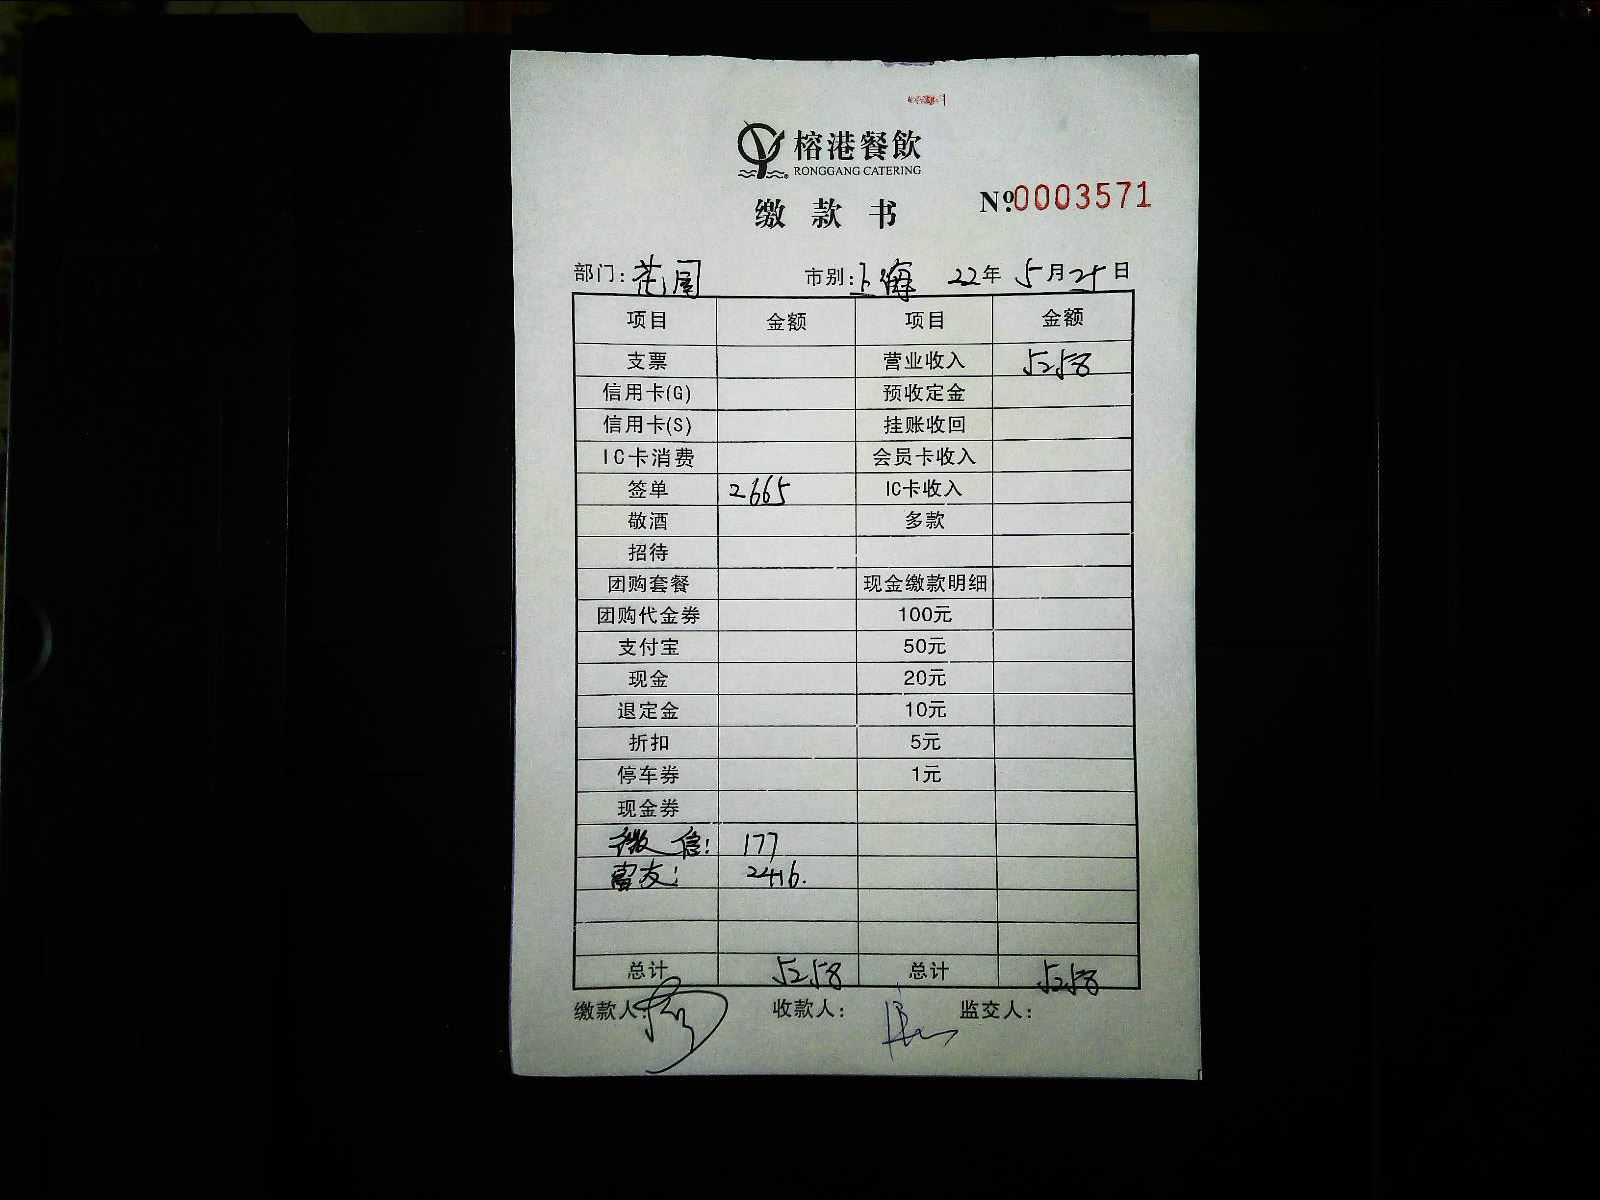 榕港餐飲
RONGGANG CATERING
缴款书
Nº0003571
部门: 市别:上海 22年5月25日
项目 金额 项目 金额
支票 营业收入 5258
信用卡(G) 预收定金
信用卡(S) 挂账收回
IC卡消费 会员卡收入
签单 2665 IC卡收入
敬酒 多款
招待
团购套餐 现金缴款明细
团购代金券 100元
支付宝 50元
现金 20元
退定金 10元
折扣 5元
停车券 1元
现金券
微信: 177
2416.
总计 5258 总计 5258
缴款人: 收款人: 监交人: